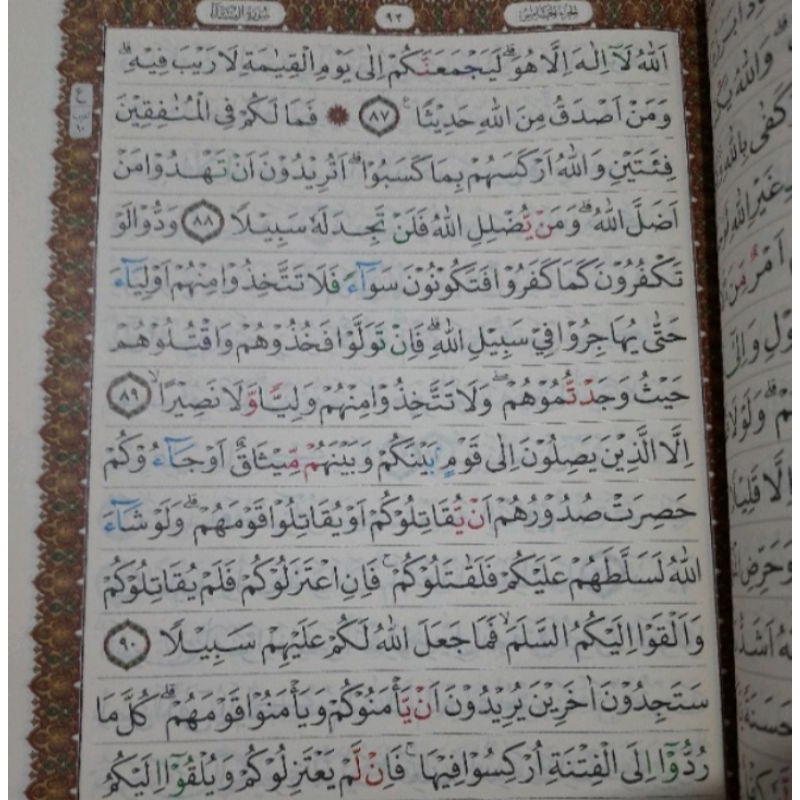 سورة النساء ٩٢ الجزء الخامس
اَللّٰهُ لَآ اِلٰهَ اِلَّا هُوَۗ لَيَجْمَعَنَّكُمْ اِلٰى يَوْمِ الْقِيٰمَةِ لَا رَيْبَ فِيْهِۗ
وَمَنْ اَصْدَقُ مِنَ اللّٰهِ حَدِيْثًا ࣖ ٨٧ ۞ فَمَا لَكُمْ فِى الْمُنٰفِقِيْنَ
فِئَتَيْنِ وَاللّٰهُ اَرْكَسَهُمْ بِمَا كَسَبُوْاۗ اَتُرِيْدُوْنَ اَنْ تَهْدُوْا مَنْ
اَضَلَّ اللّٰهُۗ وَمَنْ يُّضْلِلِ اللّٰهُ فَلَنْ تَجِدَ لَهٗ سَبِيْلًا ٨٨ وَدُّوْا لَوْ
تَكْفُرُوْنَ كَمَا كَفَرُوْا فَتَكُوْنُوْنَ سَوَاۤءً فَلَا تَتَّخِذُوْا مِنْهُمْ اَوْلِيَاۤءَ
حَتّٰى يُهَاجِرُوْا فِيْ سَبِيْلِ اللّٰهِۗ فَاِنْ تَوَلَّوْا فَخُذُوْهُمْ وَاقْتُلُوْهُمْ
حَيْثُ وَجَدْتُّمُوْهُمْۖ وَلَا تَتَّخِذُوْا مِنْهُمْ وَلِيًّا وَّلَا نَصِيْرًاۙ ٨٩
اِلَّا الَّذِيْنَ يَصِلُوْنَ اِلٰى قَوْمٍۢ بَيْنَكُمْ وَبَيْنَهُمْ مِّيْثَاقٌ اَوْ جَاۤءُوْكُمْ
حَصِرَتْ صُدُوْرُهُمْ اَنْ يُّقَاتِلُوْكُمْ اَوْ يُقَاتِلُوْا قَوْمَهُمْۗ وَلَوْ شَاۤءَ
اللّٰهُ لَسَلَّطَهُمْ عَلَيْكُمْ فَلَقٰتَلُوْكُمْۚ فَاِنِ اعْتَزَلُوْكُمْ فَلَمْ يُقَاتِلُوْكُمْ
وَاَلْقَوْا اِلَيْكُمُ السَّلَمَۙ فَمَا جَعَلَ اللّٰهُ لَكُمْ عَلَيْهِمْ سَبِيْلًا ٩٠
سَتَجِدُوْنَ اٰخَرِيْنَ يُرِيْدُوْنَ اَنْ يَّأْمَنُوْكُمْ وَيَأْمَنُوْا قَوْمَهُمْۗ كُلَّ مَا
رُدُّوْٓا اِلَى الْفِتْنَةِ اُرْكِسُوْا فِيْهَاۚ فَاِنْ لَّمْ يَعْتَزِلُوْكُمْ وَيُلْقُوْٓا اِلَيْكُمُ